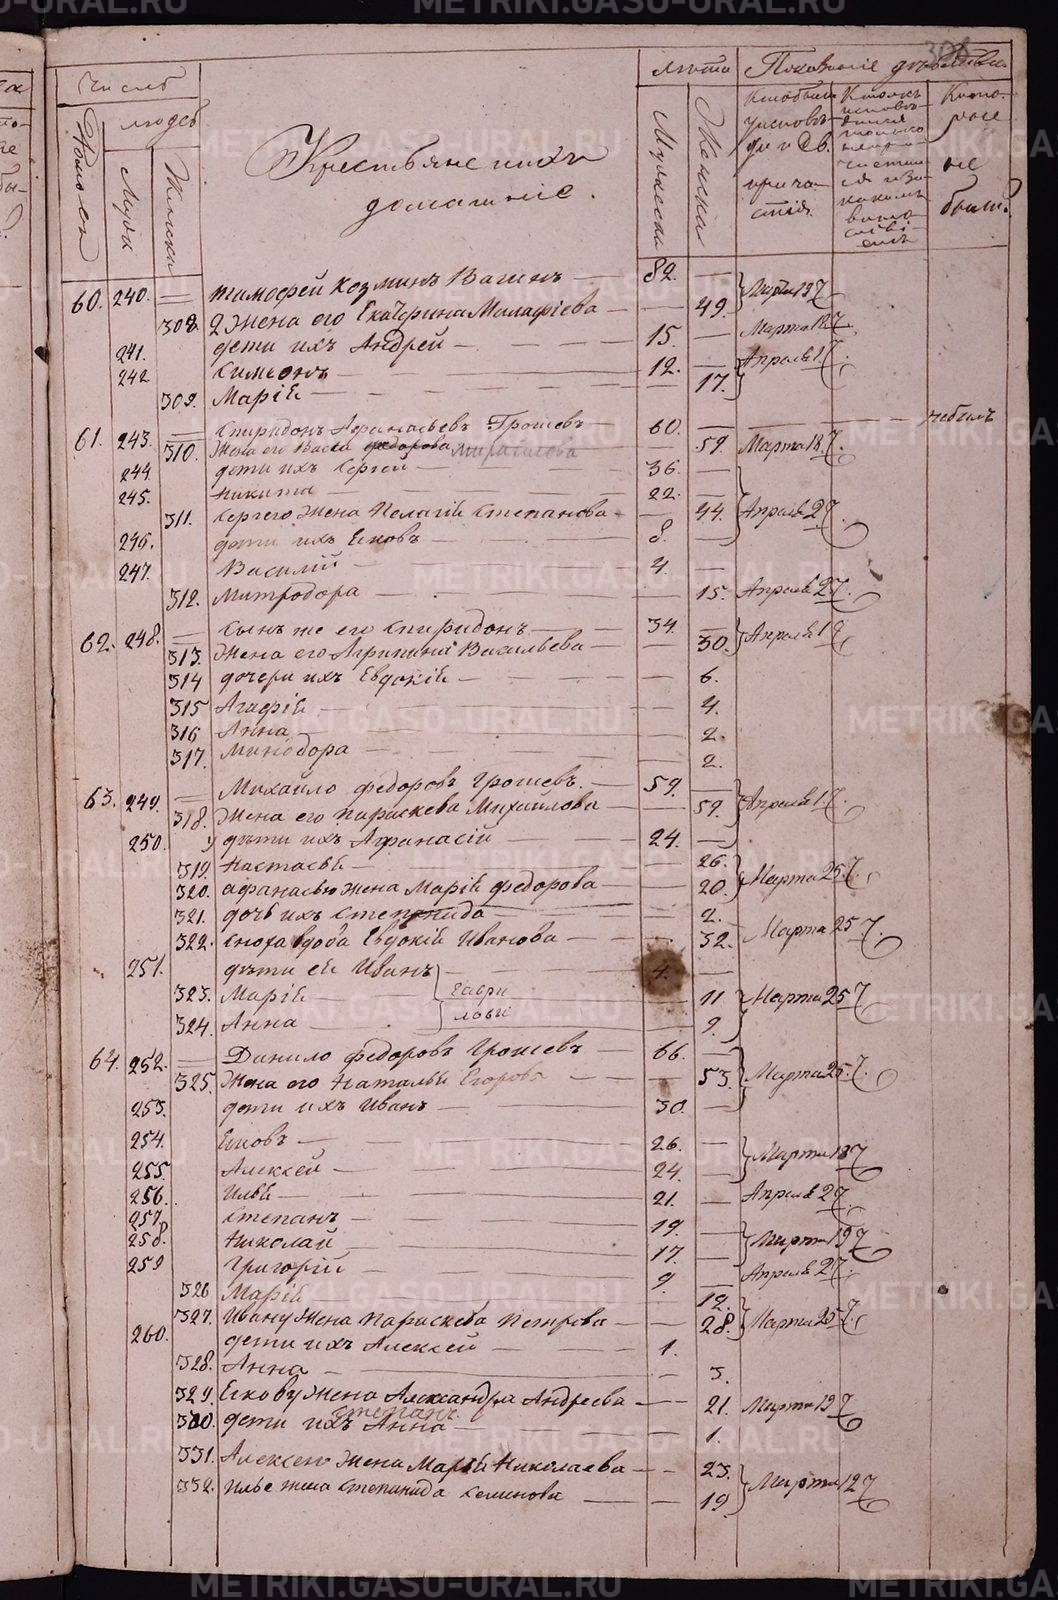 308
Число
людей
Домовъ
Мужска
Женска
Крестьяне ихъ
домашніе.
Лѣта
Мужески
Женски
Показаніе дѣйства
Кто были у исповѣди и Св. причастія.
Которые не были.
60. 240. Тимофей Козминъ Вагинъ — 82. —
308. 2 жена его Екатерина Малафіева — — 49. Марта 19
241. дети ихъ Андрей — 15. — Марта 18
242 Симеонъ — 12. — Апреля 1
309. Марія — — 17.
61. 243. Спиридонъ Афанасьевъ Грошевъ — 60. — небылъ
310. Жена его Васса федорова — 59. Марта 18
244. дети ихъ Сергей — 36. —
245. Никита — 22. —
311. Сергею жена Пелагія Степанова — — 44. Апреля 2
246. дети ихъ Яковъ — 8. —
247. Василій — 4. —
312. Митродора — — 15. Апреля 2
62. 248. Сынъ же его Спиридонъ — 34. — Апреля 1
313. Жена его Агрипина Васильева — — 30.
314 дочери ихъ Евдокія — — 6.
315 Агафія — 4.
316 Анна — 2.
317. Минодора — — 2.
63. 249. Михайло федоровъ Грошевъ. — 59. — Апреля 1
318. Жена его параскева Михайлова — — 59.
250. у дѣти ихъ Афанасій — 24. —
319. Настасья — — 26. Марта 25
320. афанасью жена Марія федорова — — 20.
321. дочь ихъ Степанида — — 2.
322. сноха вдова Евдокія Иванова — — 32. Марта 25
251. дѣти ея Иванъ — 4. —
323. Марія — Гаври — 11 Марта 25
324. Анна — ловы — 9.
64. 252. Данило федоровъ Грошевъ — 66. — Марта 25
325. Жена его Наталья Егорова — — 53.
253. дети ихъ Иванъ — 30. —
254. Яковъ — 26. — Марта 18
255. Алексей — 24. —
256. Илья — 21. — Апреля 2
257. Степанъ — 19. —
258. Николай — 17. — Марта 19
259 Григорій — 9. — Апреля 2
326 Марія — 12.
327. Ивану жена Параскева Петрова — — 28. Марта 25
260. дети ихъ Алексей — 1.
328. Анна — 3.
329. Якову жена Александра Андреева — — 21. Марта 19
Степанъ
330. дети ихъ Анна — — 1.
331. Алексею жена Марія Николаева — — 23. Марта 12
332. Илье жена Степанида Семенова — — 19
METRIKI.GASO-URAL.RU